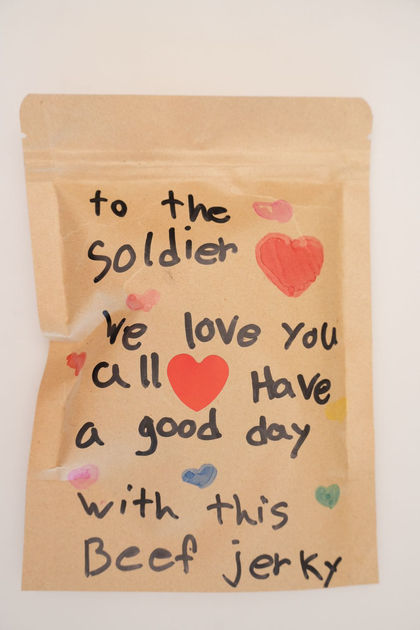 to the
soldier
We love you
all Have
a good day
with this
Beef jerky